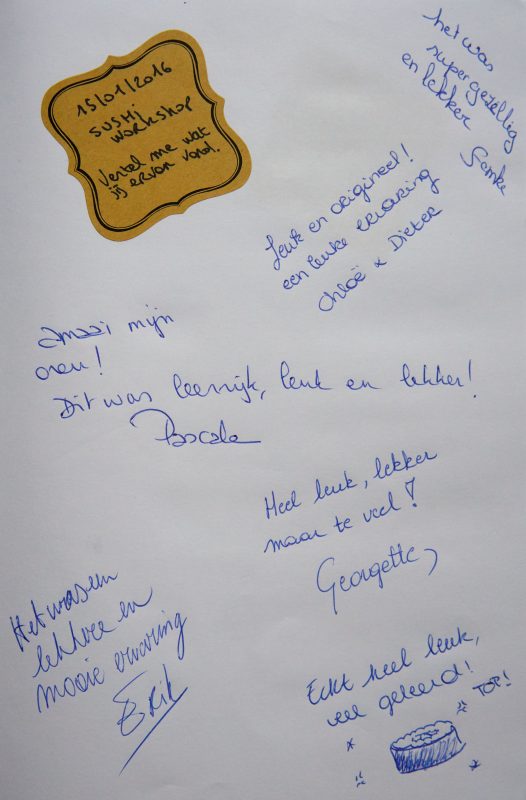 15/01/2016
SUSHI
WORKSHOP
Vertel me wat
jij ervan vond.
het was
super gezellig
en lekker
Leuk en origineel!
een leuke ervaring
Chloë & Dieter
Amaai mijn
oren!
Dit was leerrijk, leuk en lekker!
Pascale
Heel leuk, lekker
maar te veel!
Georgette
Het was een
lekkere en
mooie ervaring
Erik
Echt heel leuk,
veel geleerd!
TOP!